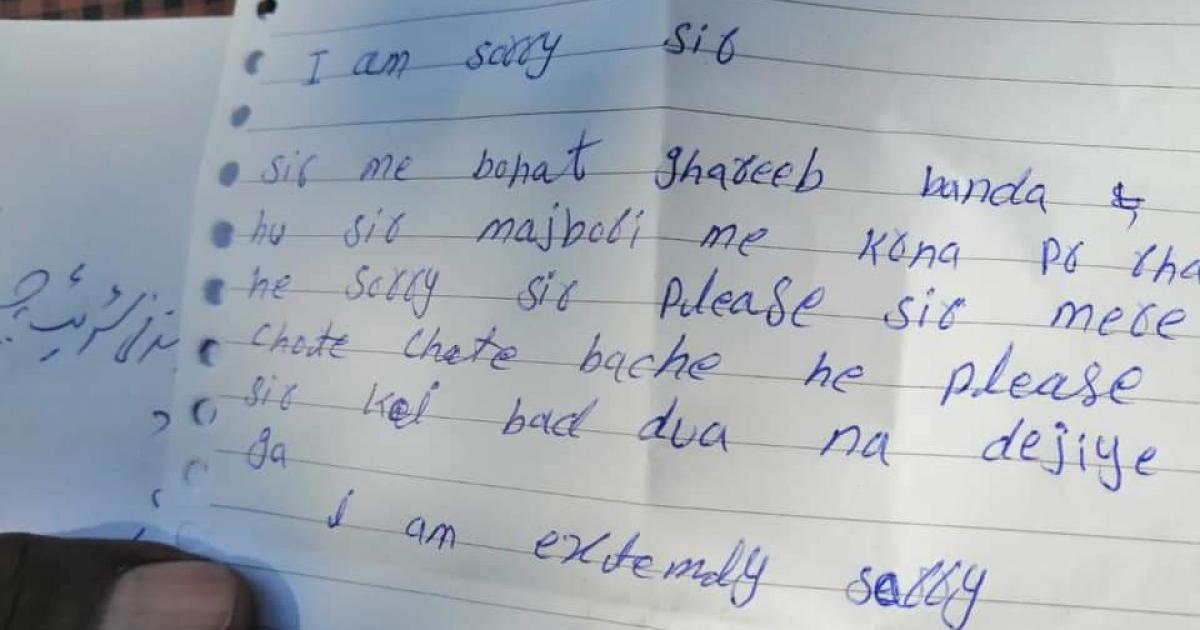 I am sorry sir
sir me bohat ghareeb banda
hu sir majbori me krna pr rha
he sorry sir please sir mere
chote chote bache he please
sir koi bad dua na dejiye
ga
i am extemly sorry